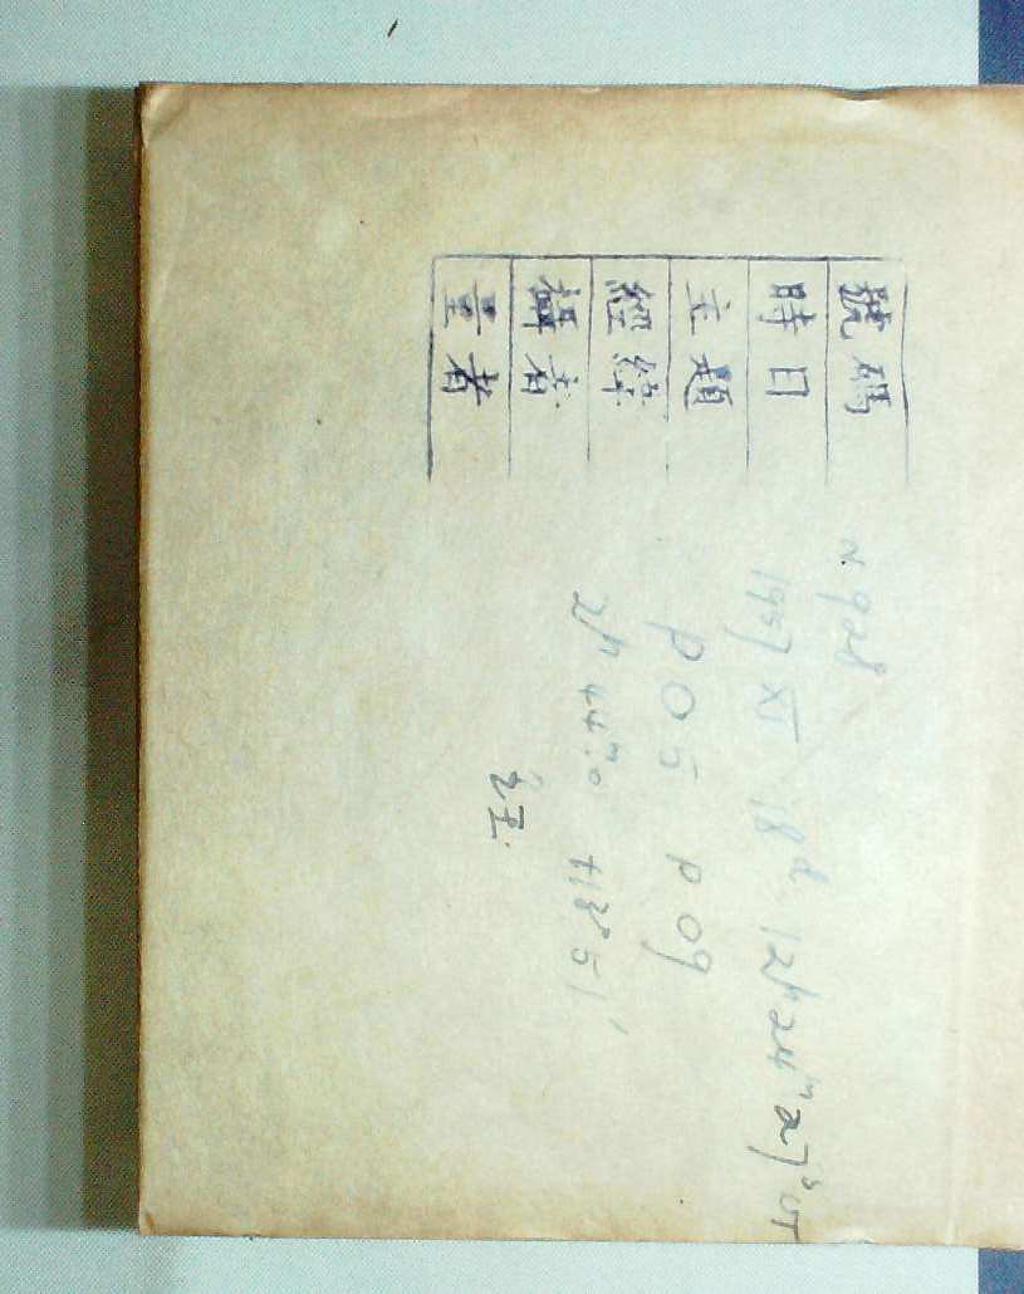 號碼 N. 928
時日 1957 XI 18d 12h 24m 27s UT
主題 P05 P09
經緯 2h 44m.0 +18° 51′
攝者
量者